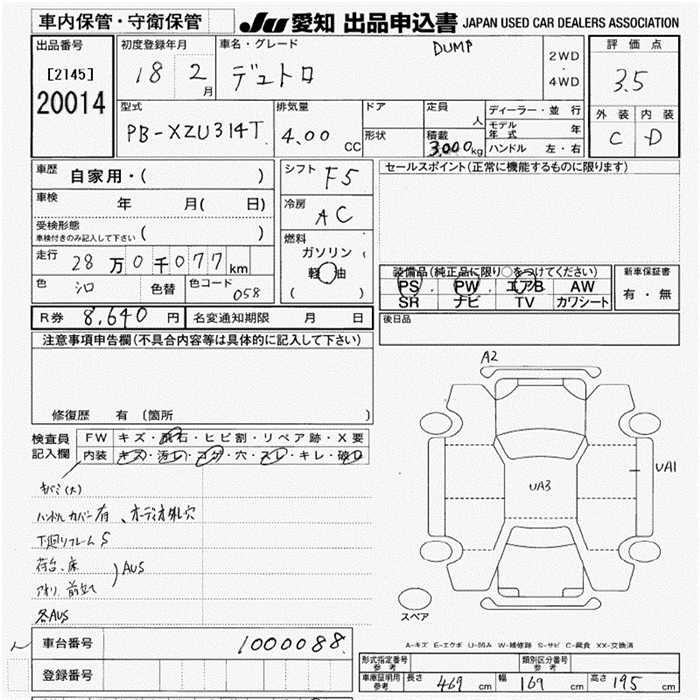 車内保管・守衛保管
JU 愛知 出品申込書 JAPAN USED CAR DEALERS ASSOCIATION
出品番号
[2145]
20014
初度登録年月
18 2 月
車名・グレード
DUMP
デュトロ
2WD
・
4WD
評価点
3.5
外装 内装
C D
型式
PB-XZU314T
排気量
4.00 CC
ドア
形状
定員
人
積載
3,000 kg
ディーラー・並行
モデル年式 年
ハンドル 左・右
車歴
自家用・( )
車検
年 月( 日)
受検形態
車検付きのみ記入して下さい ( )
走行
28万0千077km
色
シロ
色替
色コード
058
シフト
F5
冷房
AC
燃料
ガソリン
軽油
( )
セールスポイント(正常に機能するものに限ります)
装備品(純正品に限り○をつけてください)
PS PW エアB AW
SR ナビ TV カワシート
新車保証書
有・無
R券 8,640 円
名変通知期限 月 日
後日品
注意事項申告欄(不具合内容等は具体的に記入して下さい)
修復歴 有 〔箇所 〕
検査員記入欄
FW キズ・飛石・ヒビ割・リペア跡・X要
内装 キズ・汚レ・コゲ・穴・スレ・キレ・破レ
ハンドルカバー有、オーディオ外し穴
下廻りフレームS
荷台、床
アオリ、前立て
)AUS
各AUS
A2
UA3
UA1
スペア
A-キズ E-エクボ U-凹み W-補修跡 S-サビ C-腐食 XX-交換済
車台番号
1000088
登録番号
型式指定番号 参考
類別区分番号 参考
車庫証明用参考
長さ 469 cm 幅 169 cm 高さ 195 cm